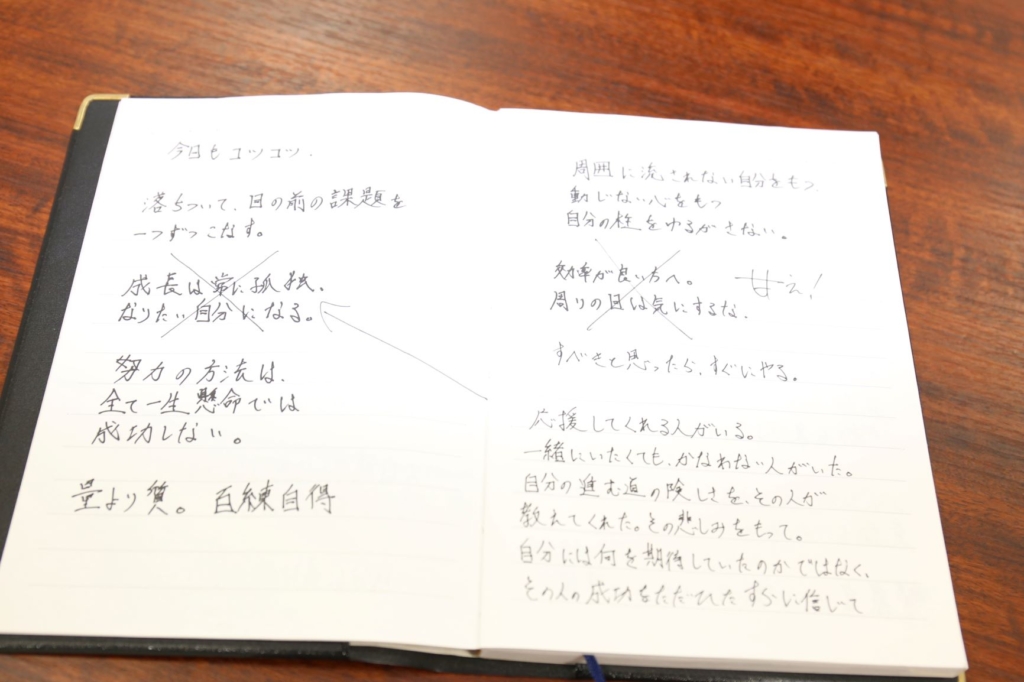 今日もコツコツ.
落ちついて、目の前の課題を
一つずつこなす。
成長は常に孤独.
なりたい自分になる。
努力の方法は.
全て一生懸命では
成功しない。
量より質。 百練自得
周囲に流されない自分をもつ.
動じない心をもつ
自分の性をゆるがさない。
効率が良い方へ。
周りの目は気にするな.
甘え!
すべきと思ったら、すぐにやる。
応援してくれる人がいる。
一緒にいたくても、かなわない人がいた。
自分の進む道の険しさを、その人が
教えてくれた。その悲しみをもって。
自分には何を期待していたのかではなく、
その人の成功をただひたすらに信じて